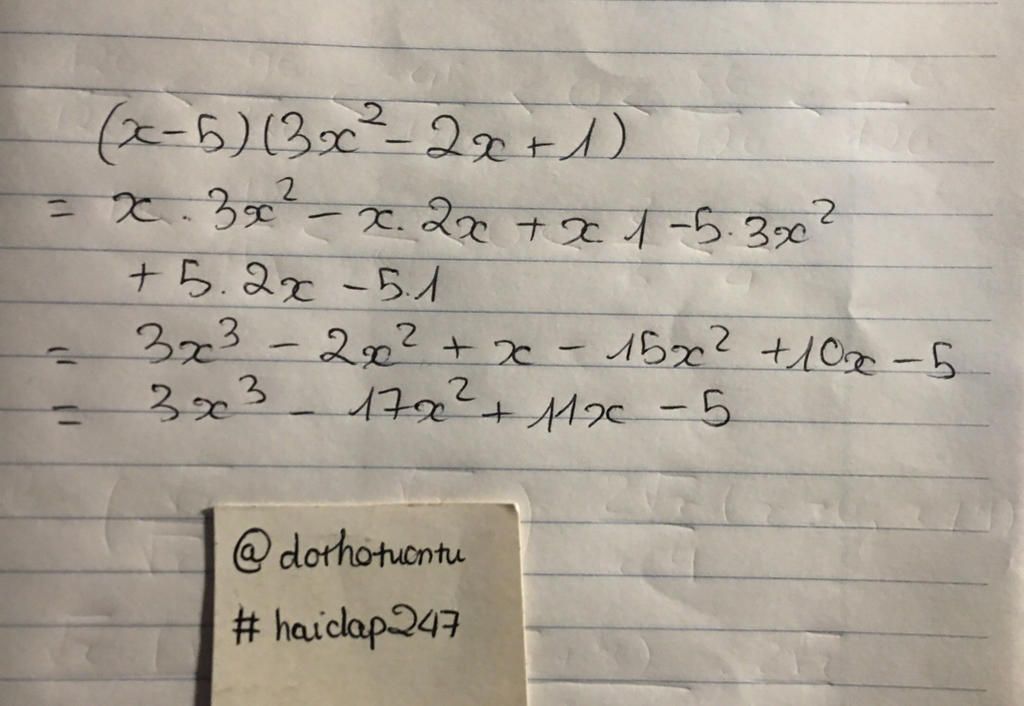 (x-5)(3x² - 2x + 1)
= x . 3x² - x. 2x + x 1 - 5. 3x²
+ 5. 2x - 5.1
= 3x³ - 2x² + x - 15x² + 10x - 5
= 3x³ - 17x² + 11x - 5
@dorhotuontu
# haidap247